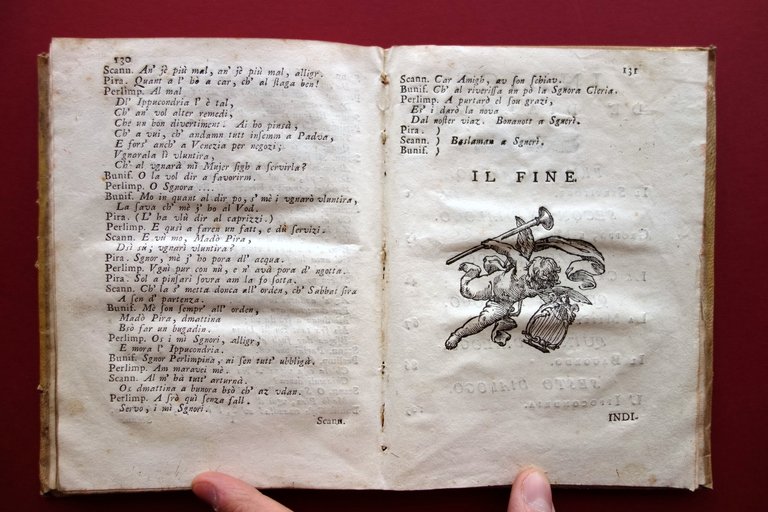 130
Scann. An' jè più mal, an' jè più mal, alligr.
Pira. Quant a l' hò a car, ch' al staga ben!
Perlimp. Al mal
Dl' Ippucondria l' è tal,
Ch' an' vol alter remedi,
Che un bon divertiment. Ai ho pinsà,
Ch' a vui, ch' andamn tutt insemm a Padva,
E fors' anch' a Venezia per negozi;
Vgnorala sì vluntira,
Ch' al vgnarà mi Mujer sigh a servirla?
Bunif. O la vol dir a favorirm.
Perlimp. O Sgnora ....
Bunif. Mo in quant al dir po, s' mè i vgnarò vluntira,
La sava ch' mè j' ho al Vod.
Pira. (L' ha vlù dir al caprizzi.)
Perlimp. E qusì a faren un fatt, e dù servizi.
Scann. E vù mo, Madò Pira,
Dsì sù; vgnarì vluntira?
Pira. Sgnor, mè j' ho pora dl' acqua.
Perlimp. Vgnì pur con nù, e n' avà pora d' ngotta.
Pira. Sol a pinsari sovra am la fo sotta.
Scann. Ch' la s' metta donca all' orden, ch' Sabbat sira
A sen d' partenza.
Bunif. Mè son sempr' all' orden,
Madò Pira, dmattina
Bsò far un bugadin.
Perlimp. Os i mi Sgnori, alligr,
E mora l' Ippucondria.
Bunif. Sgnor Perlimpina, ai sen tutt' ubbligà.
Perlimp. Am maravei mè.
Scann. Al m' hà tutt' arturnà.
Os dmattina a bunora bsò ch' az vdan.
Perlimp. A srò quì senza fall.
Servo, i mi Sgnori.
Scann.
131
Scann. Car Amigh, au son schiav.
Bunif. Ch' al riverissa un pò la Sgnora Cleria.
Perlimp. A purtarò el sou grazi,
E' i darò la nova
Dal noster viaz. Bonanott a Sgneri.
Pira. )
Scann. ) Baslaman a Sgneri.
Bunif. )
IL FINE.
INDI-